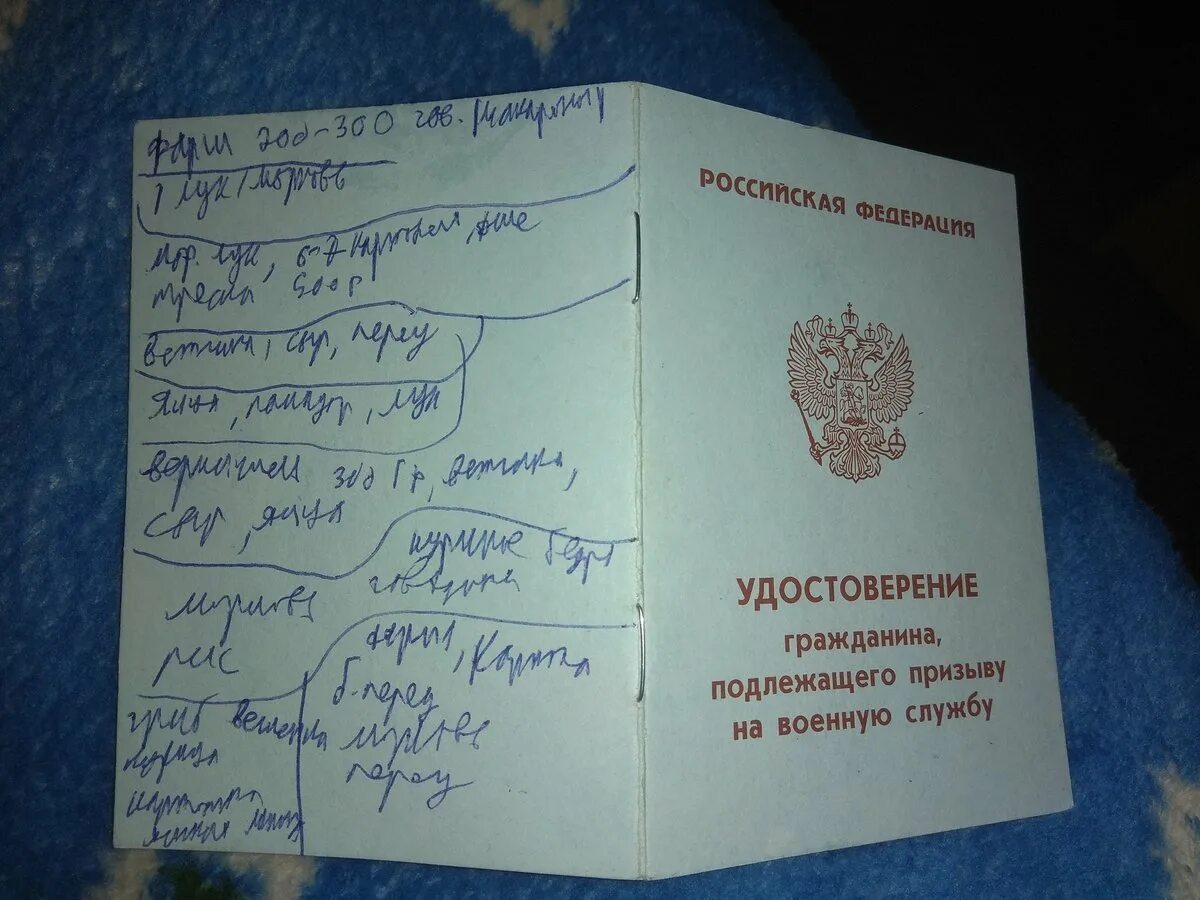 фарш 200-300 гов. (макароны)
1 лук/морковь
мор. лук, 6-7 картошки, филе
трески 500 г
Ветчина, сыр, перец
Яйца, помидор, лук
вермишель 300 гр, ветчина,
сыр, яйца
куриные бедра
говядина
морковь
рис
фарш, Картошка
б. перец
морковь
перец
гриб вешенка
курица
картошка
РОССИЙСКАЯ ФЕДЕРАЦИЯ
УДОСТОВЕРЕНИЕ
гражданина,
подлежащего призыву
на военную службу